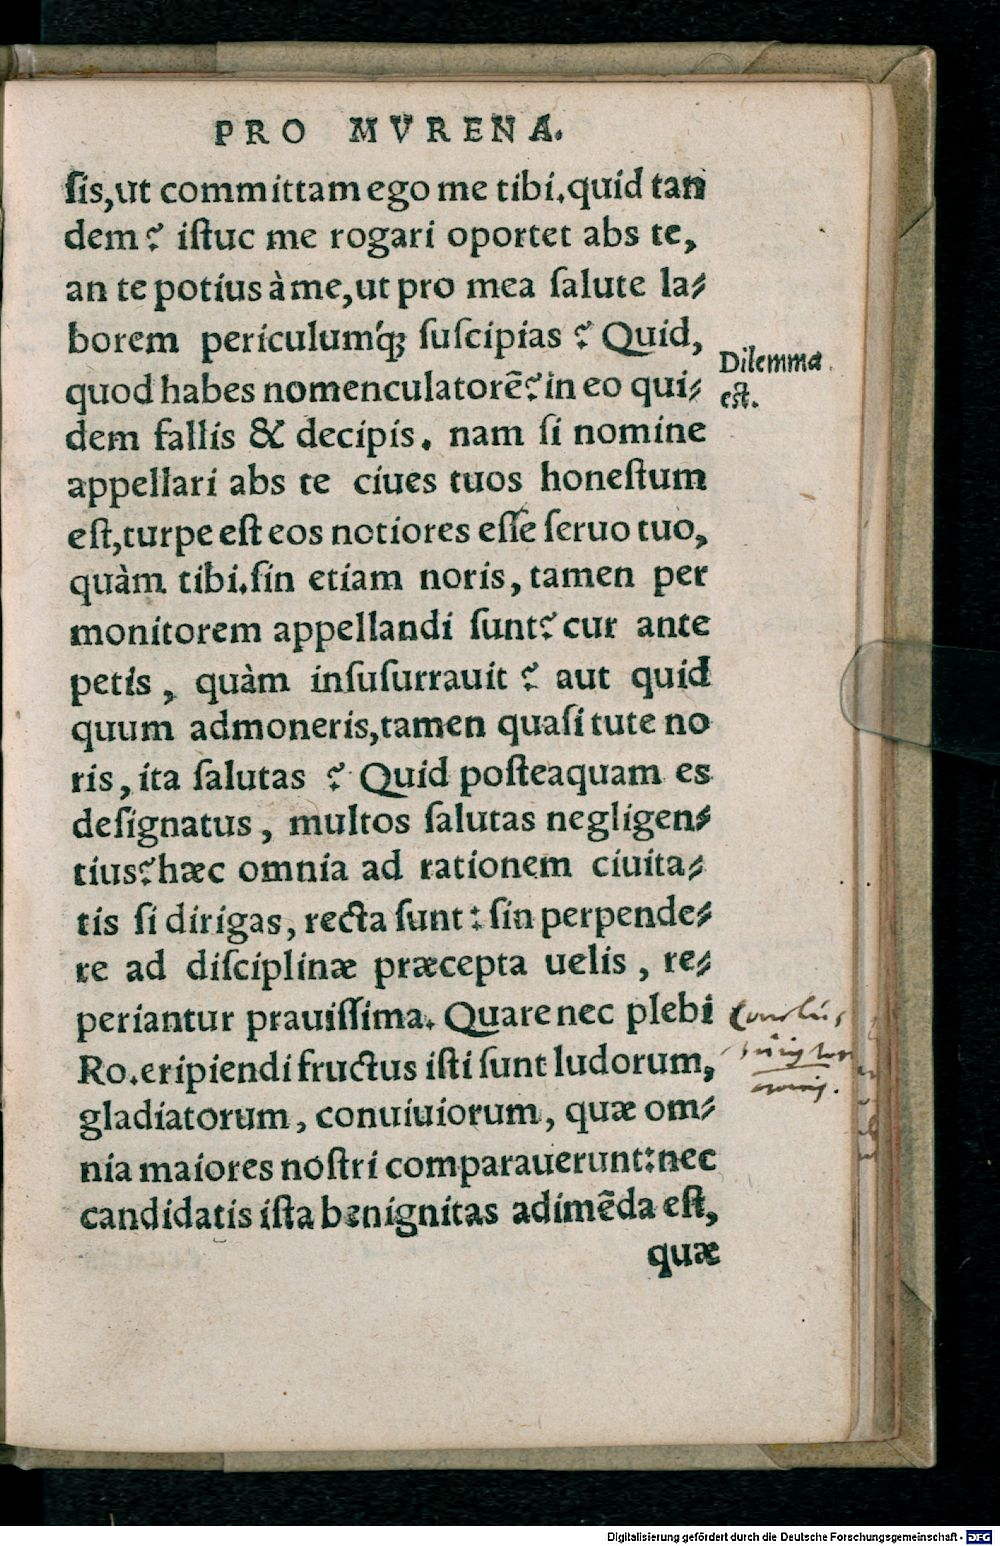 PRO MVRENA.
ſis,ut committam ego me tibi.quid tan
dem? iſtuc me rogari oportet abs te,
an te potius à me,ut pro mea ſalute la-
borem periculumq́; ſuſcipias? Quid,
Dilemma
quod habes nomenculatorē?in eo qui-
est.
dem fallis & decipis. nam ſi nomine
appellari abs te ciues tuos honeſtum
eſt,turpe eſt eos notiores eſſe ſeruo tuo,
quàm tibi.ſin etiam noris, tamen per
monitorem appellandi ſunt?cur ante
petis, quàm inſuſurrauit? aut quid
quum admoneris,tamen quaſi tute no
ris, ita ſalutas? Quid poſteaquam es
deſignatus, multos ſalutas negligen-
tius?hæc omnia ad rationem ciuita-
tis ſi dirigas, recta ſunt: ſin perpende-
re ad diſciplinæ præcepta uelis, re-
periantur prauiſſima. Quare nec plebi
Ro.eripiendi fructus iſti ſunt ludorum,
gladiatorum, conuiuiorum, quæ om-
nia maiores noſtri comparauerunt:nec
candidatis iſta benignitas adimēda eſt,
quæ
Digitalisierung gefördert durch die Deutsche Forschungsgemeinschaft - DFG